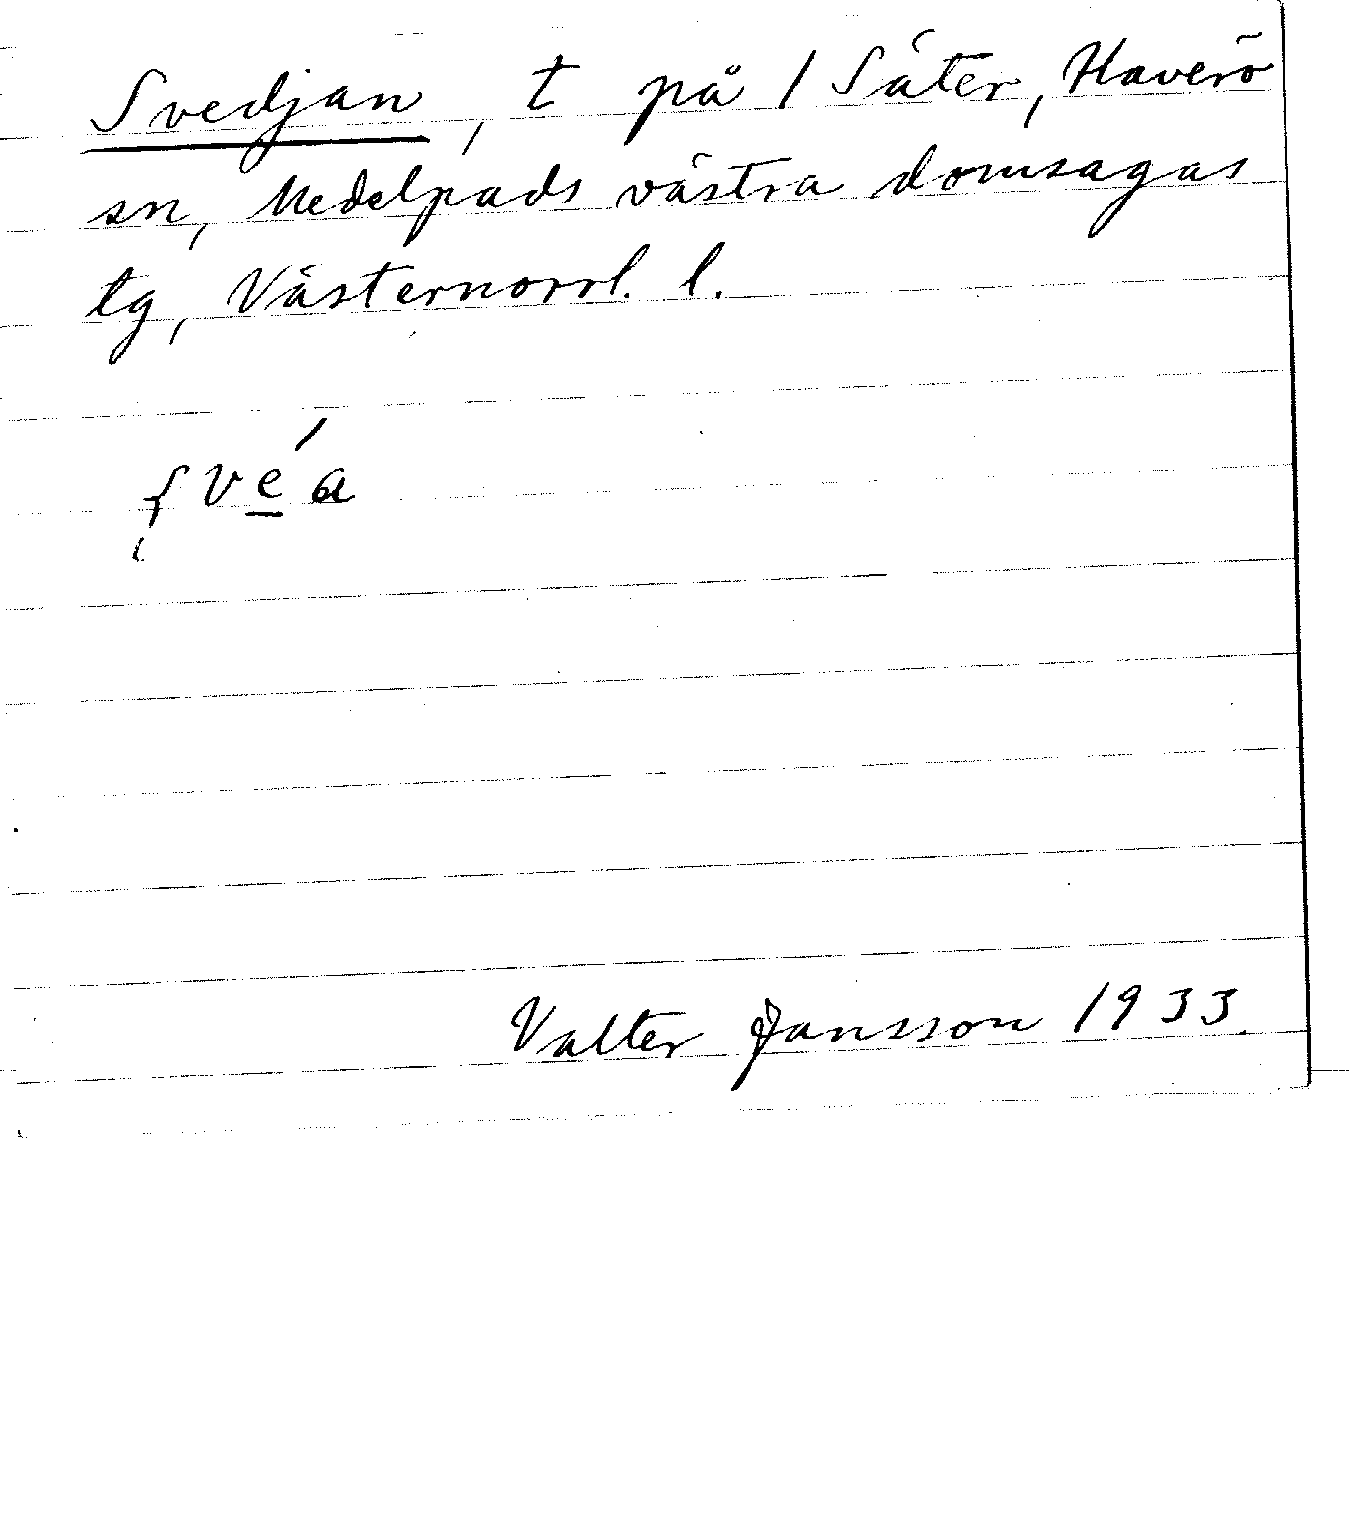 Svedjan, t på 1 Säter, Haverö
sn, Medelpads västra domsagas
tg, Västernorrl. l.
Valter Jansson 1933.